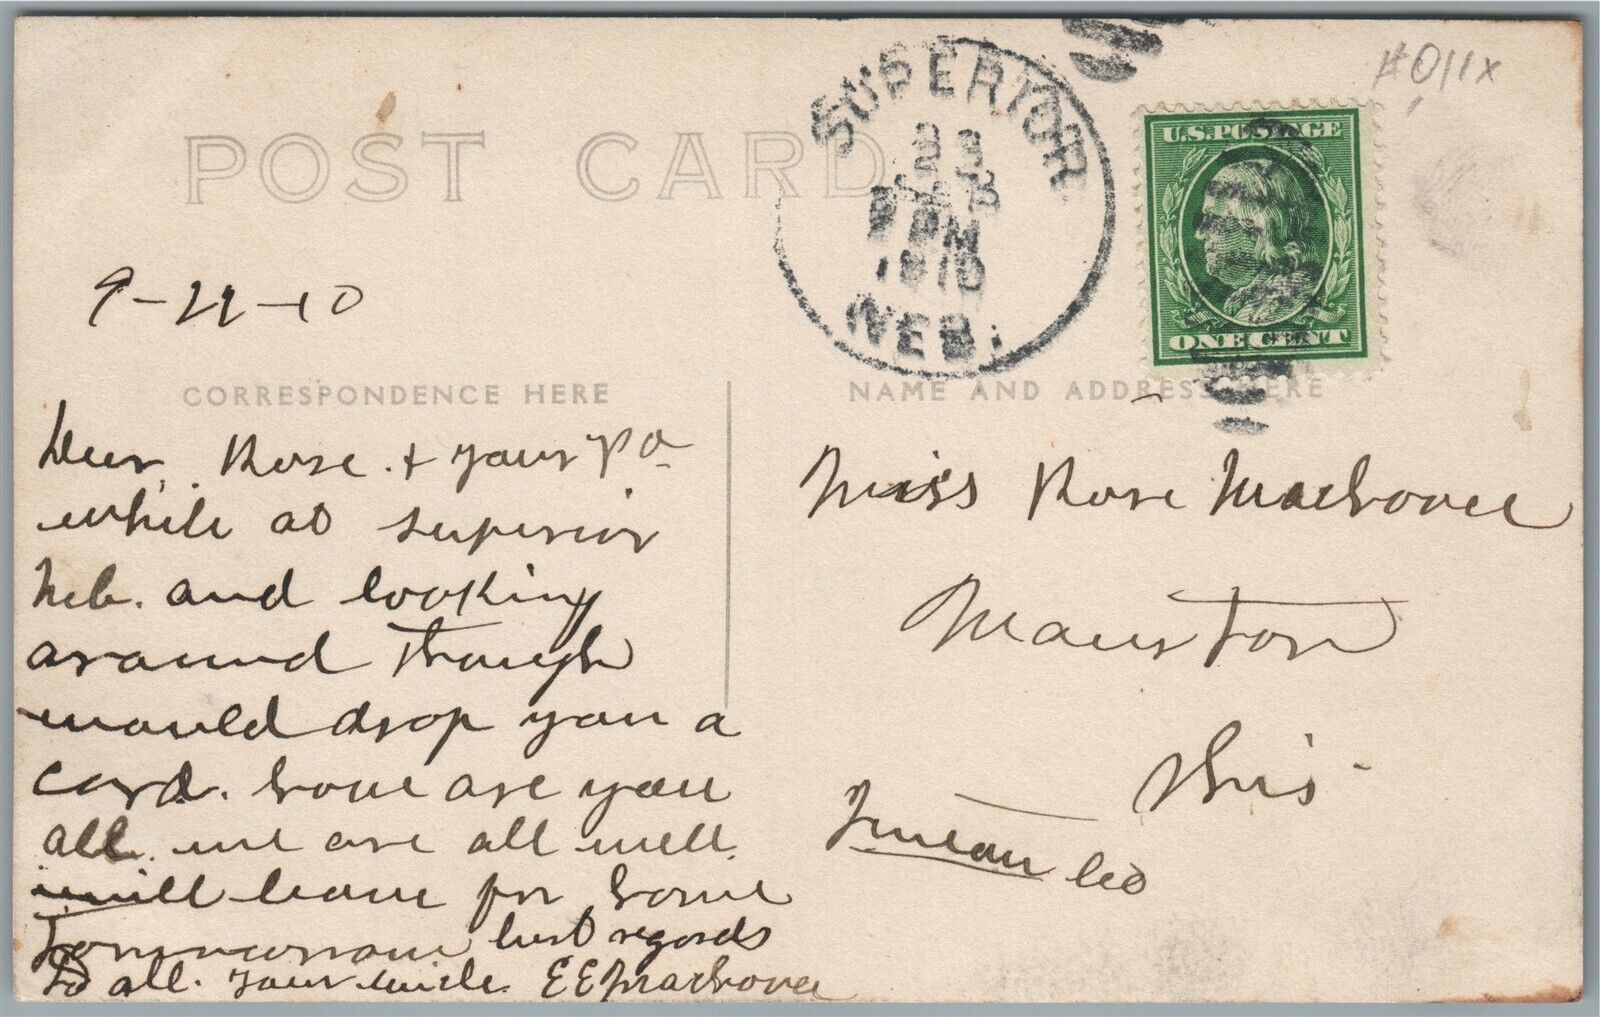 #011x
POST CARD
SUPERIOR
PM
1910
NEB.
U.S. POSTAGE
ONE CENT
9-22-10
CORRESPONDENCE HERE
NAME AND ADDRESS HERE
Dear Rose. & your Pa.
while at Superior
Neb. and looking
around though
would drop you a
card. how are you
all. we are all well.
will leave for home
Tommorrow best regards
to all. your uncle. E E
Miss Rose
Mauston
Wis
Juneau Co